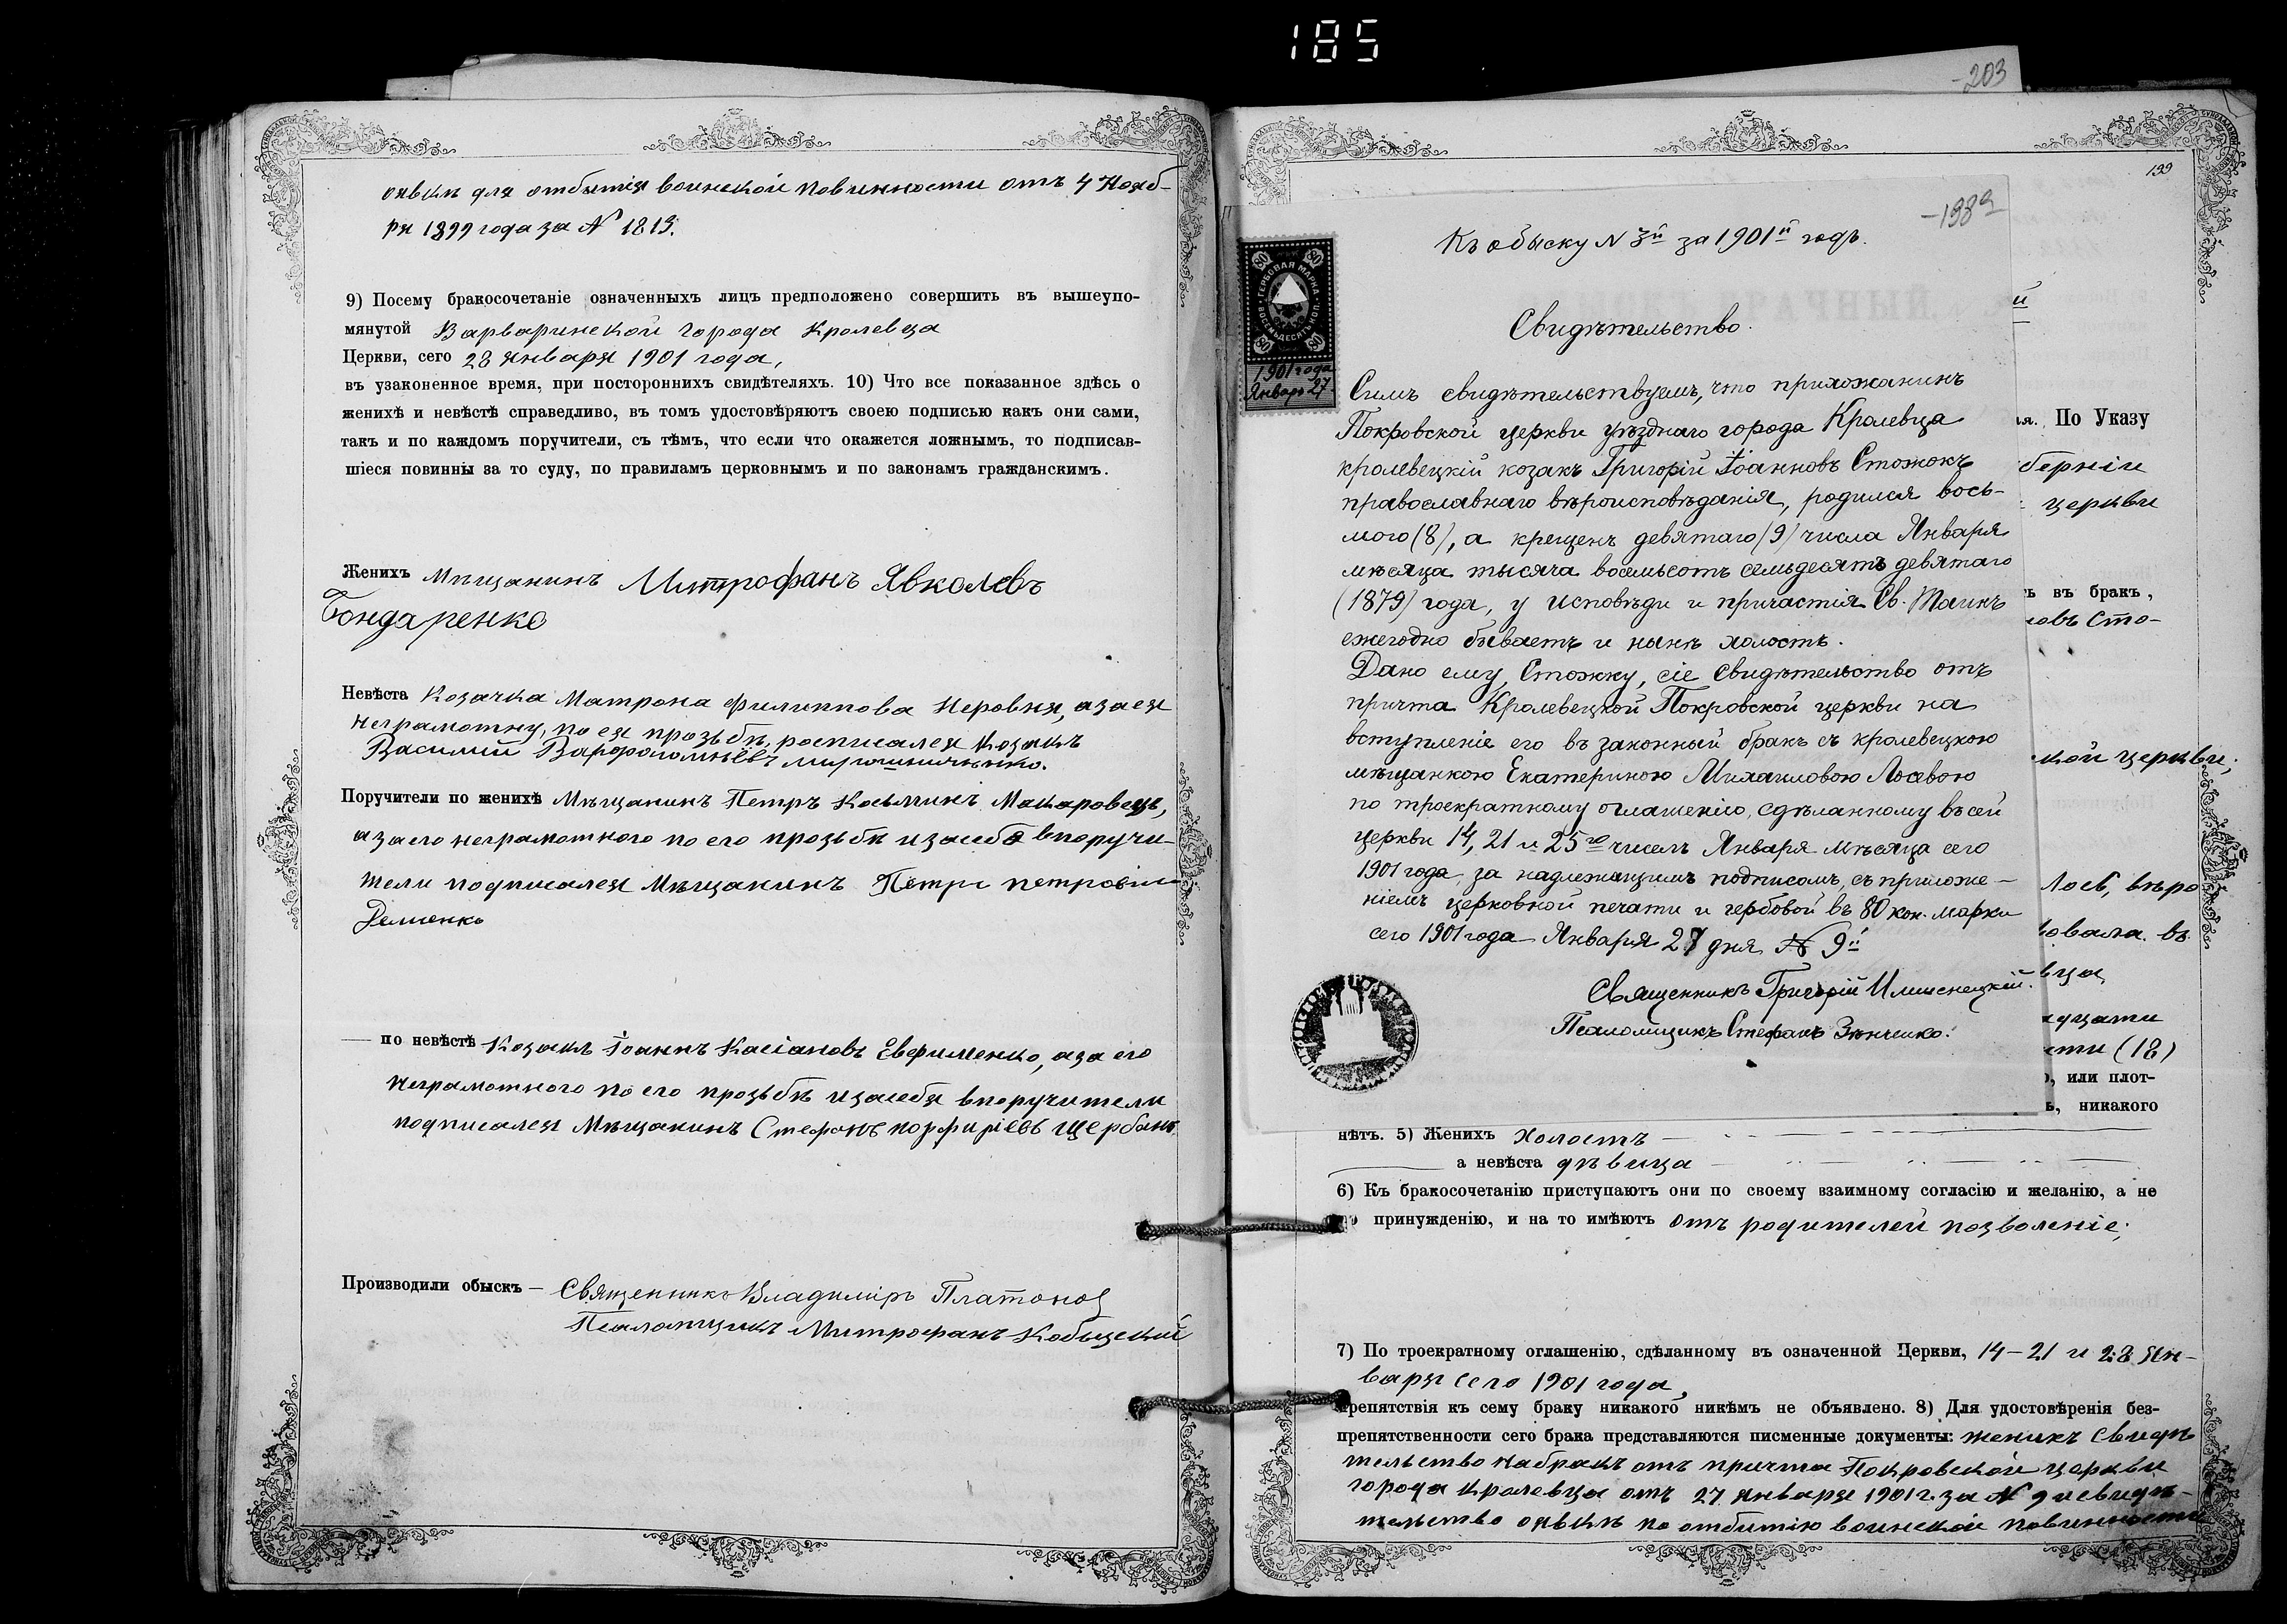 185
203
оявкѣ для отбытія воинской повинности отъ 4 Нояб-
ря 1899 года за № 1819.
9) Посему бракосочетаніе означенныхъ лицъ предположено совершить въ вышеупо-
мянутой Варваринской города Кролевца
Церкви, сего 28 января 1901 года,
въ узаконенное время, при постороннихъ свидѣтеляхъ. 10) Что все показанное здѣсь о
женихѣ и невѣстѣ справедливо, въ томъ удостовѣряютъ своею подписью какъ они сами,
такъ и по каждомъ поручители, съ тѣмъ, что если что окажется ложнымъ, то подписав-
шіеся повинны за то суду, по правиламъ церковнымъ и по законамъ гражданскимъ.
Женихъ Мѣщанинъ Митрофанъ Явколевъ
Бондаренко
Невѣста Козачка Матрона Филиппова Неровня, а за ея
неграмотну, по ея прозьбѣ, росписался Козакъ
Василий Варфоломѣевъ Мирошниченко.
Поручители по женихѣ Мѣщанинъ Петръ Косьминъ Макаровецъ,
а за его неграмотного по его прозьбѣ и за себя впоручи-
тели подписался Мѣщанинъ Петръ петровъ
Деменко
по невѣстѣ Козакъ Іоаннъ Касіановъ Евфименко, а за его
неграмотного по его прозьбѣ и за себя впоручители
подписался Мѣщанинъ Стефанъ порфиріевъ Щербакъ
Производили обыскъ – Священникъ Владиміръ Платонов
Псаломщикъ Митрофанъ Кобыцский
199
198а
Къ обыску № 3й за 1901й годъ.
80 80
ГЕРБОВАЯ МАРКА
ВОСЕМЬДЕСЯТЬ КОП.
80 80
1901 года
Январь 27.
Свидѣтельство.
Симъ свидѣтельствуемъ, что прихожанинъ
Покровской церкви уѣзднаго города Кролевца
кролевецкій козакъ Григорій Іоанновъ Стожокъ
православнаго вѣроисповѣданія, родился вось-
мого (8), а крещенъ девятаго (9) числа Января
мѣсяца тысяча восемьсотъ семьдесятъ девятаго
(1879) года, у исповѣди и причастія Св. Таинъ
ежегодно бываетъ и нынѣ холостъ.
Дано ему, Стожку, сіе свидѣтельство отъ
причта Кролевецкой Покровской церкви на
вступленіе его въ законный бракъ съ кролевецкою
мѣщанкою Екатериною Михаиловою Лосевою
по троекратному оглашенію, сдѣланному въ сей
церкви 14, 21 и 25го чиселъ Января мѣсяца сего
1901 года, за надлежащимъ подписомъ, съ приложе-
ніемъ церковной печати и гербовой въ 80 коп. марки
сего 1901 года Января 27 дня № 9й
Священникъ Григорій
Псаломщикъ Стефанъ Зѣнченко.
я. По Указу
берніи
церкви
ь въ бракъ,
новъ Сто-
кой церкви;
Лоев, вѣро
овала въ
вца
дцати
ети (18)
о, или плот-
ь, никакого
нѣтъ. 5) Женихъ холостъ
а невѣста дѣвица
6) Къ бракосочетанію приступаютъ они по своему взаимному согласію и желанію, а не
принужденію, и на то имѣютъ отъ родителей позволеніе;
7) По троекратному оглашенію, сдѣланному въ означенной Церкви, 14 – 21 и 28 Ян-
варя сего 1901 года,
препятствія къ сему браку никакого никѣмъ не объявлено. 8) Для удостовѣренія без-
препятственности сего брака представляются писменные документы: женихъ Свидѣ
тельство на бракъ отъ причта Покровской церкви
города Кролевца отъ 27 января 1901 г. за № 9 и свидѣ-
тельство оявкѣ по отбитію воинской повинности